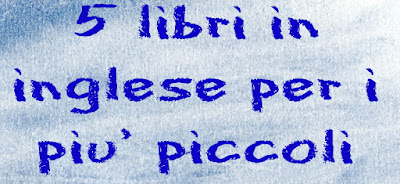 5 libri in
inglese per i
piu' piccoli